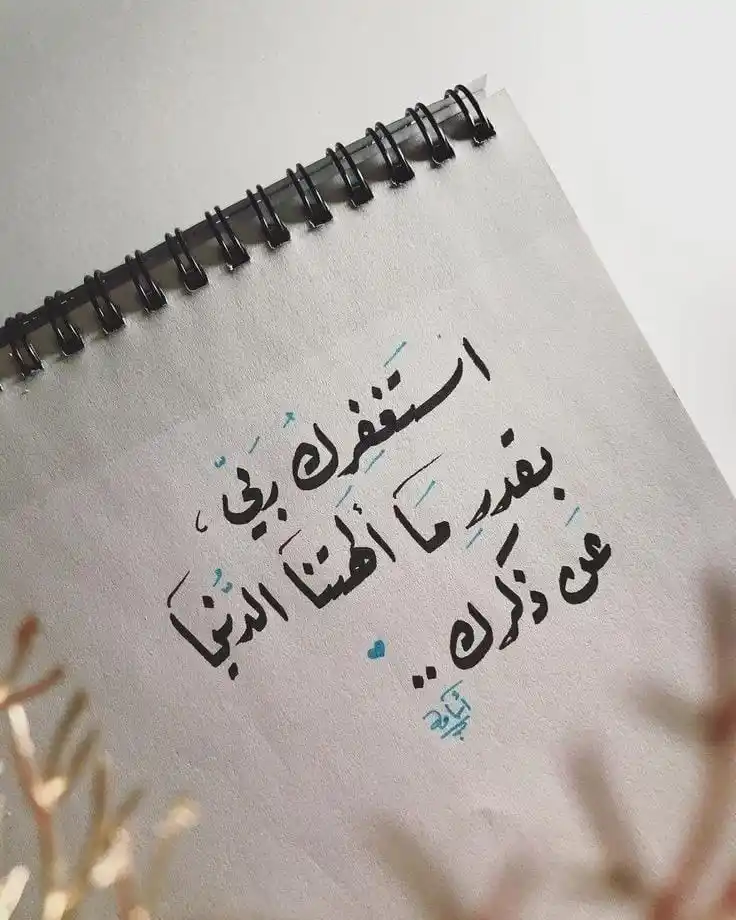 استَغفِركُ رَبّي ،
بقدرِ مَا ألهَتنَا الدُّنيَا
عَن ذكرك ..